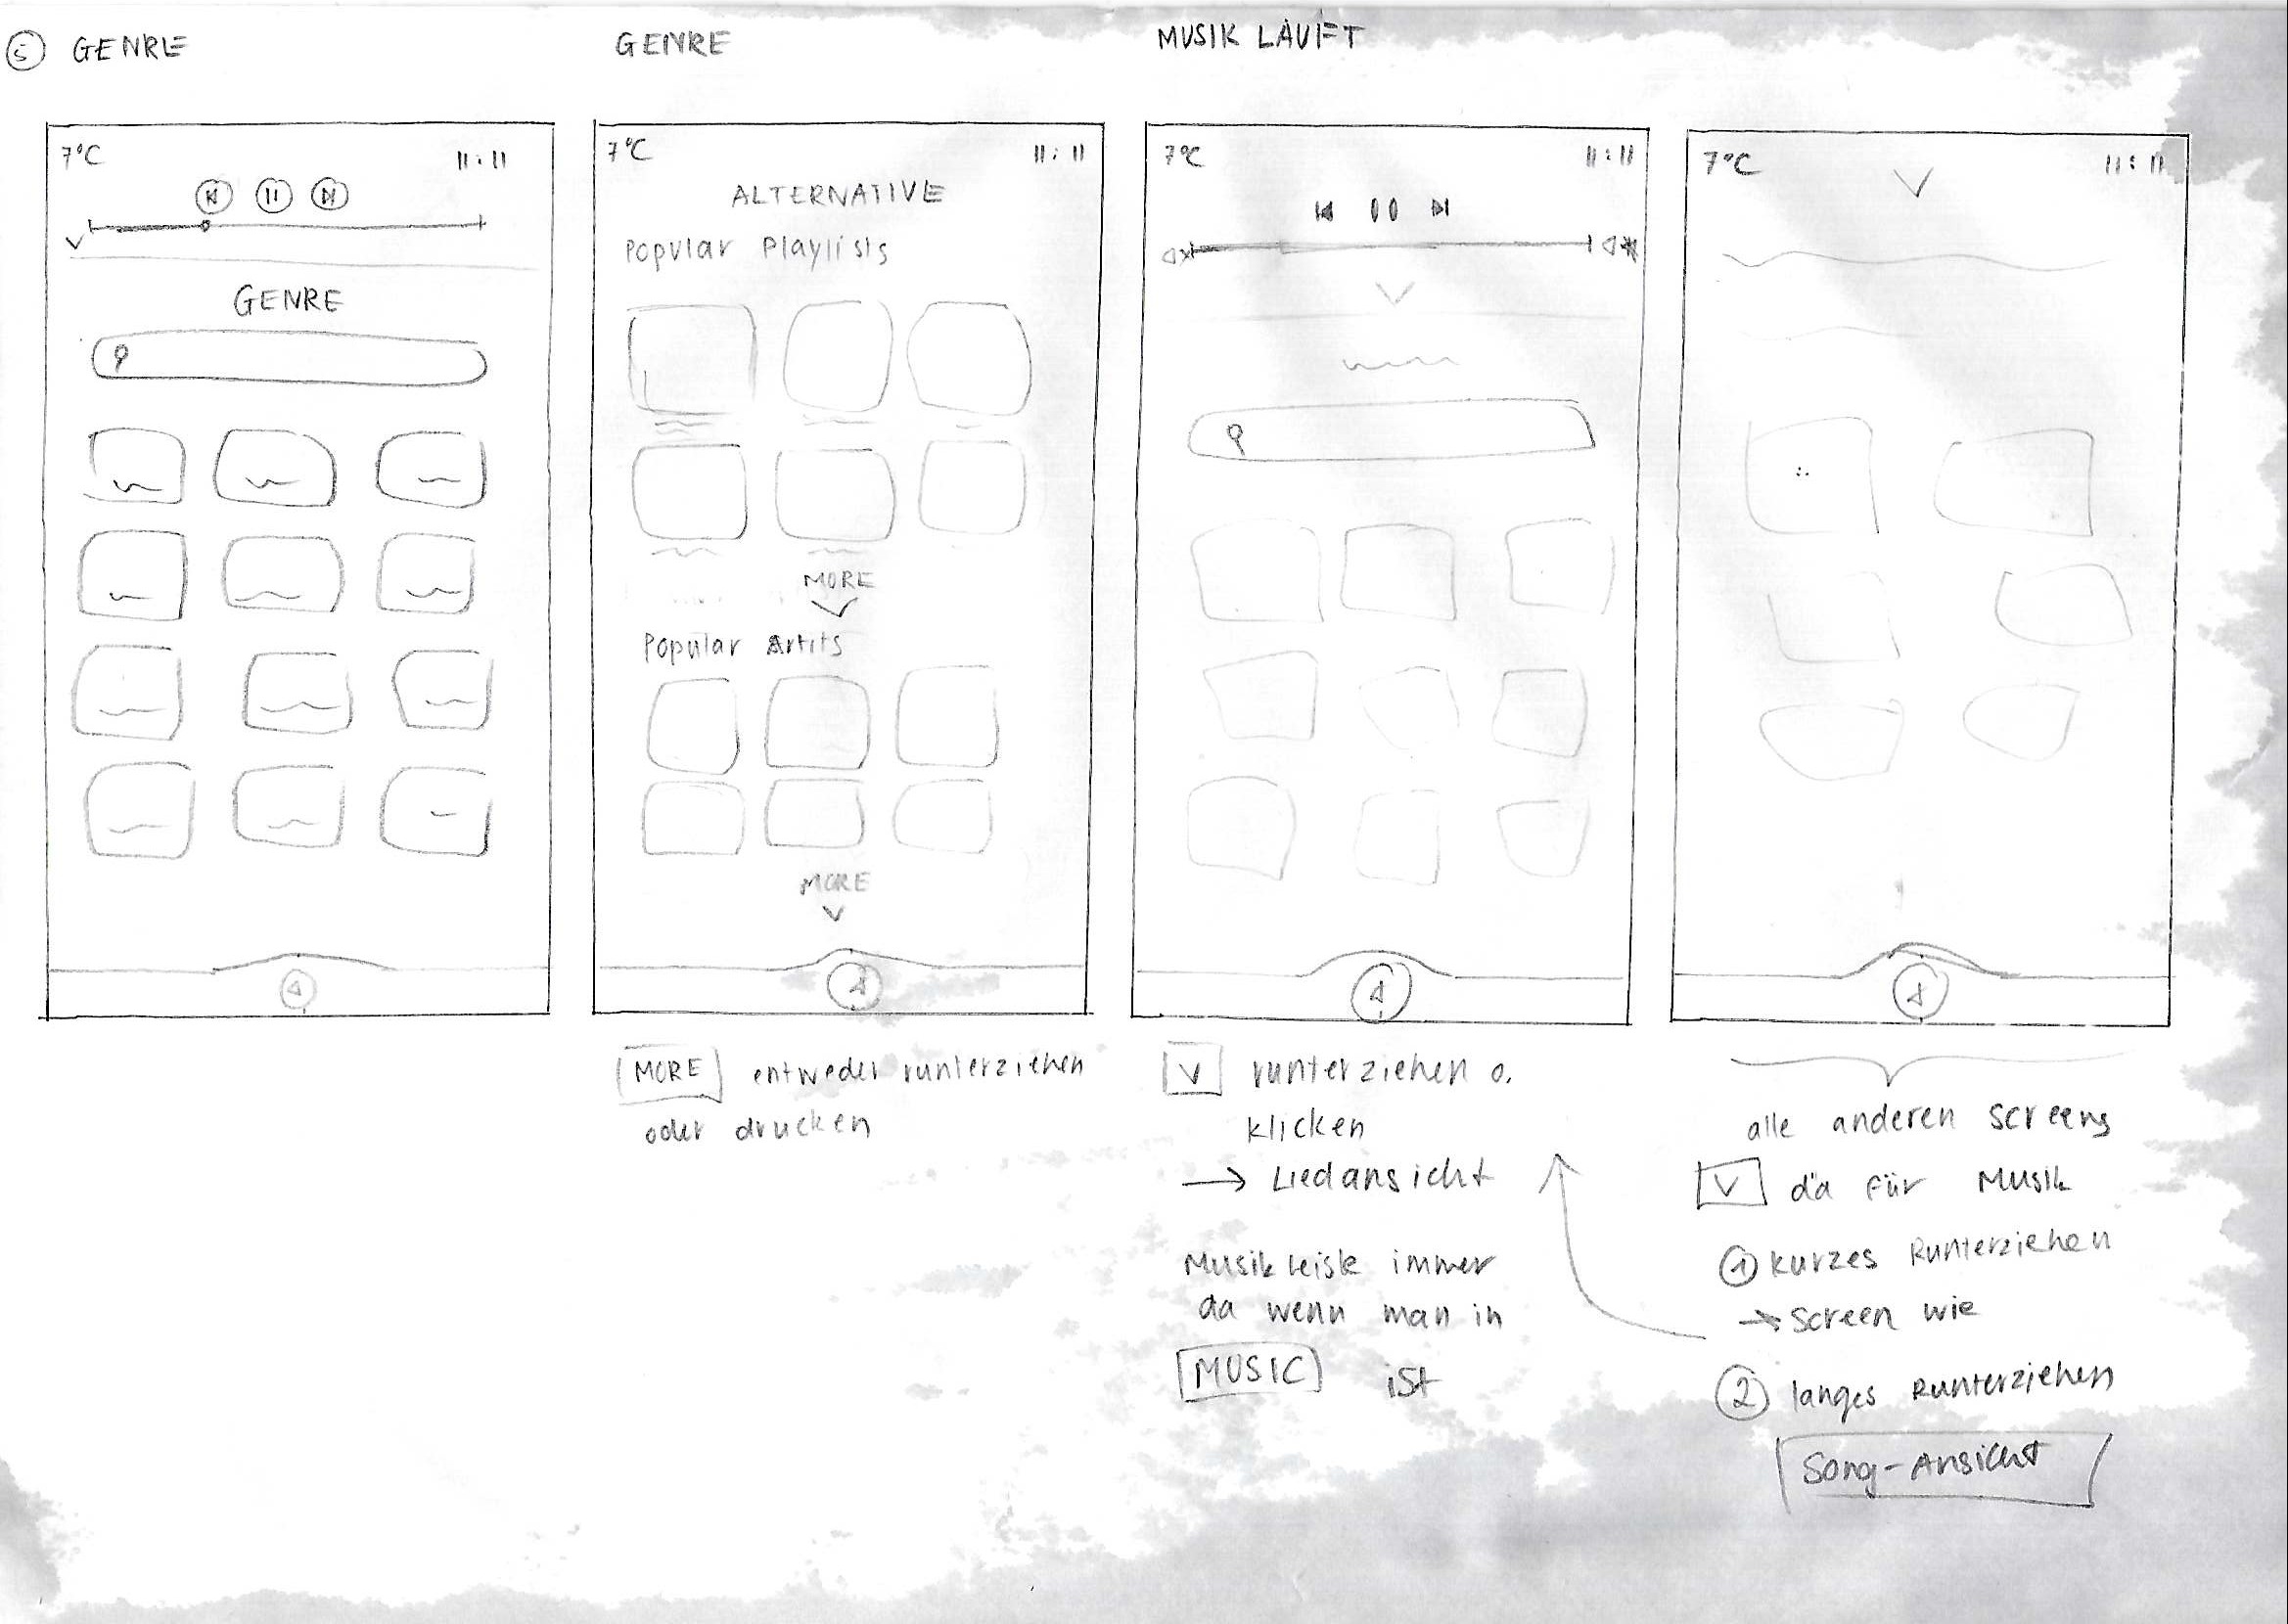 5 GENRE
GENRE
MUSIK LÄUFT
7°C
11:11
GENRE
7°C
11:11
ALTERNATIVE
Popular Playlists
MORE
Popular Artits
MORE
7°C
11:11
7°C
11:11
MORE entweder runterziehen
oder drucken
V runterziehen o.
klicken
→ Liedansicht
Musikleiste immer
da wenn man in
MUSIC ist
alle anderen screens
V da für Musik
1 kurzes Runterziehen
→ Screen wie
2 langes Runterziehen
Song-Ansicht